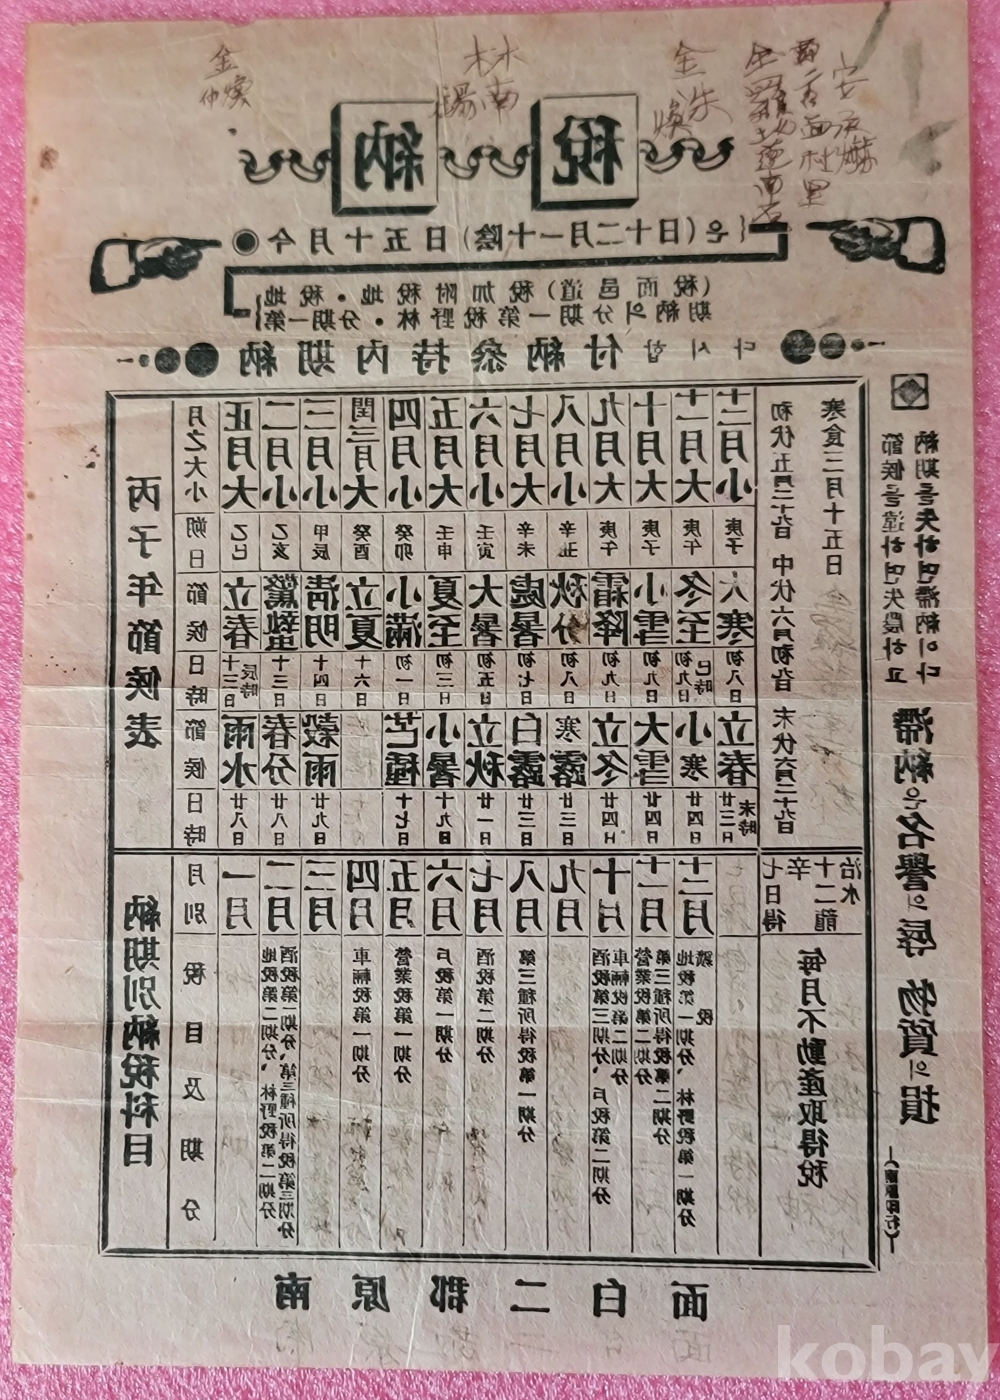 金
仲煥
林
南
陽
金
洙
煥
納稅
●今月十五日(陰十一月二十日)은
地稅・地稅附加稅(道邑面稅)
第一期分・林野稅第一期分의納期
納期內持參納付합시다
丙子年節候表
月之大小 朔日 節候 日時 節候 日時
正月大 乙巳 立春 十三日 辰時 雨水 廿八日
二月小 乙亥 驚蟄 十三日 春分 廿八日
三月小 甲辰 淸明 十四日 穀雨 廿九日
閏三月大 癸酉 立夏 十六日
四月小 癸卯 小滿 初一日 芒種 十七日
五月大 壬申 夏至 初三日 小暑 十九日
六月小 壬寅 大暑 初五日 立秋 廿一日
七月大 辛未 處暑 初七日 白露 廿三日
八月小 辛丑 秋分 初八日 寒露 廿三日
九月大 庚午 霜降 初九日 立冬 廿四日
十月大 庚子 小雪 初九日 大雪 廿四日
十一月大 庚午 冬至 初九日 巳時 小寒 廿四日
十二月小 庚子 大寒 初八日 立春 廿三日 未時
初伏五月二十九日 中伏六月初十日 末伏六月二十九日
寒食三月十五日
納期別納稅科目
月別 稅目及期分
一月
二月 地稅第二期分、林野稅第二期分 酒稅第一期分、第三種所得稅第三期分
三月
四月 車輛稅第一期分
五月 營業稅第一期分
六月 戶稅第一期分
七月 酒稅第二期分
八月 第三種所得稅第一期分
九月
十月 酒稅第三期分、戶稅第二期分 車輛稅第二期分
十一月 營業稅第二期分 第三種所得稅第二期分
十二月 地稅第一期分、林野稅第一期分 鑛稅
七日得辛
十二龍治水
每月不動產取得稅
節候를違하면失農하고
納期를失하면滯納이다
滯納은名譽의辱 物質의損
南原郡二白面
kobay